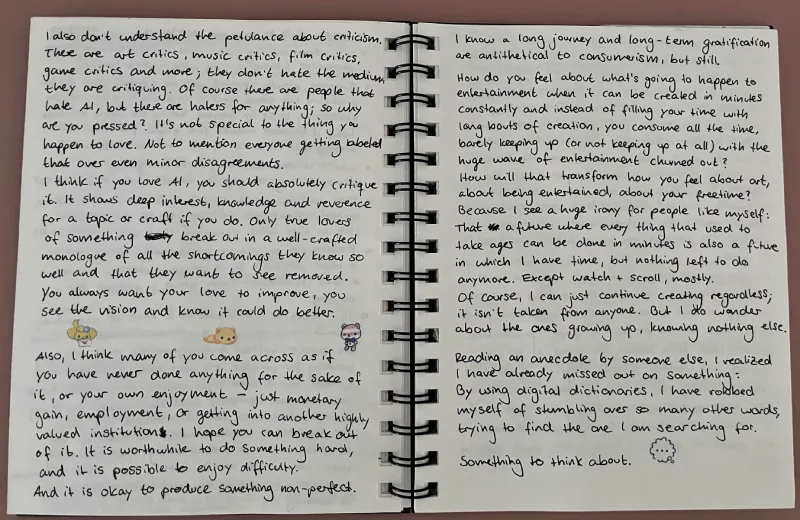 I also don't understand the petulance about criticism.
There are art critics, music critics, film critics,
game critics and more; they don't hate the medium
they are critiquing. Of course there are people that
hate AI, but there are haters for anything; so why
are you pressed? It's not special to the thing you
happen to love. Not to mention everyone getting labeled
that over even minor disagreements.
I think if you love AI, you should absolutely critique
it. It shows deep interest, knowledge and reverence
for a topic or craft if you do. Only true lovers
of something break out in a well-crafted
monologue of all the shortcomings they know so
well and that they want to see removed.
You always want your love to improve, you
see the vision and know it could do better.
Also, I think many of you come across as if
you have never done anything for the sake of
it, or your own enjoyment – just monetary
gain, employment, or getting into another highly
valued institution. I hope you can break out
of it. It is worthwhile to do something hard,
and it is possible to enjoy difficulty.
And it is okay to produce something non-perfect.
I know a long journey and long-term gratification
are antithetical to consumerism, but still.
How do you feel about what's going to happen to
entertainment when it can be created in minutes
constantly and instead of filling your time with
long bouts of creation, you consume all the time,
barely keeping up (or not keeping up at all) with the
huge wave of entertainment churned out?
How will that transform how you feel about art,
about being entertained, about your freetime?
Because I see a huge irony for people like myself:
That a future where every thing that used to
take ages can be done in minutes is also a future
in which I have time, but nothing left to do
anymore. Except watch + scroll, mostly.
Of course, I can just continue creating regardless;
it isn't taken from anyone. But I do wonder
about the ones growing up, knowing nothing else.
Reading an anecdote by someone else, I realized
I have already missed out on something:
By using digital dictionaries, I have robbed
myself of stumbling over so many other words,
trying to find the one I am searching for.
Something to think about.